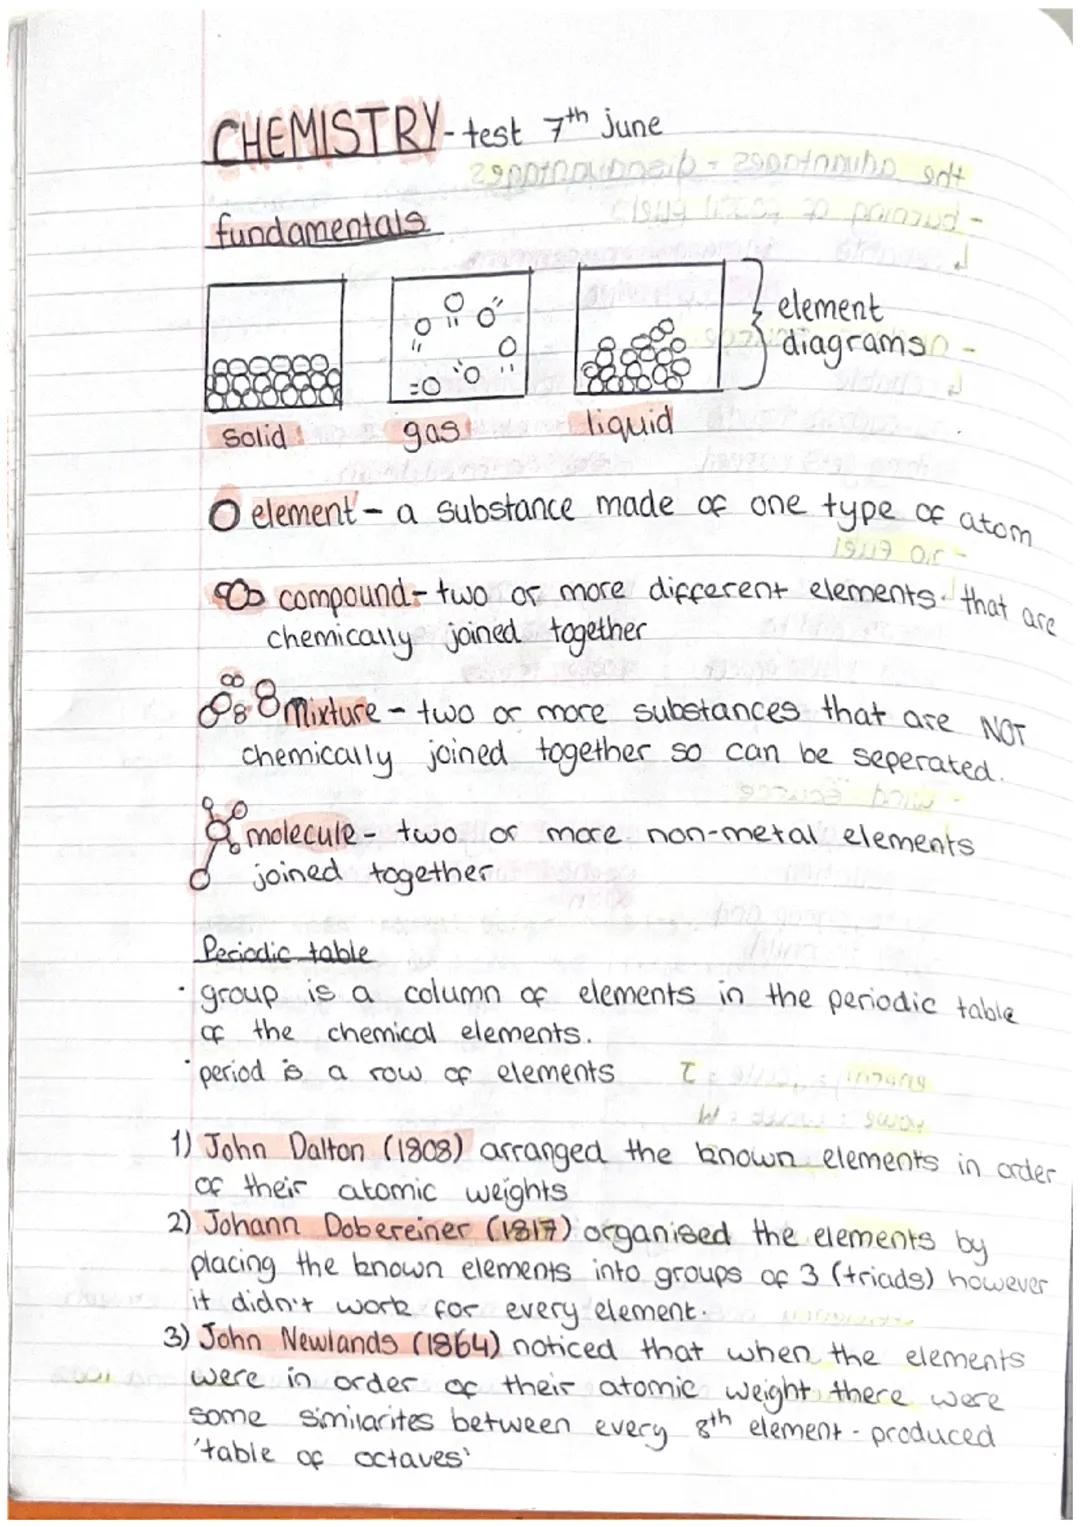 CHEMISTRY - test 7th june
fundamentals
element
diagrams
solid
gas
liquid
element - a substance made of one type of atom
compound - two or more different elements that are
chemically joined together
Mixture - two or more substances that are NOT
chemically joined together so can be seperated.
molecule - two or more non-metal elements
joined together
Periodic table
· group is a column of elements in the periodic table
of the chemical elements.
· period is a row of elements
1) John Dalton (1808) arranged the known elements in order
of their atomic weights
2) Johann Dobereiner (1817) organised the elements by
placing the known elements into groups of 3 (triads) however
it didn't work for every element.
3) John Newlands (1864) noticed that when the elements
were in order of their atomic weight there were
some similarites between every 8th element - produced
'table of octaves'